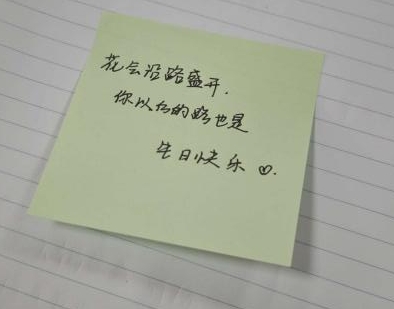 花会沿路盛开.
你以后的路也是
生日快乐♡.